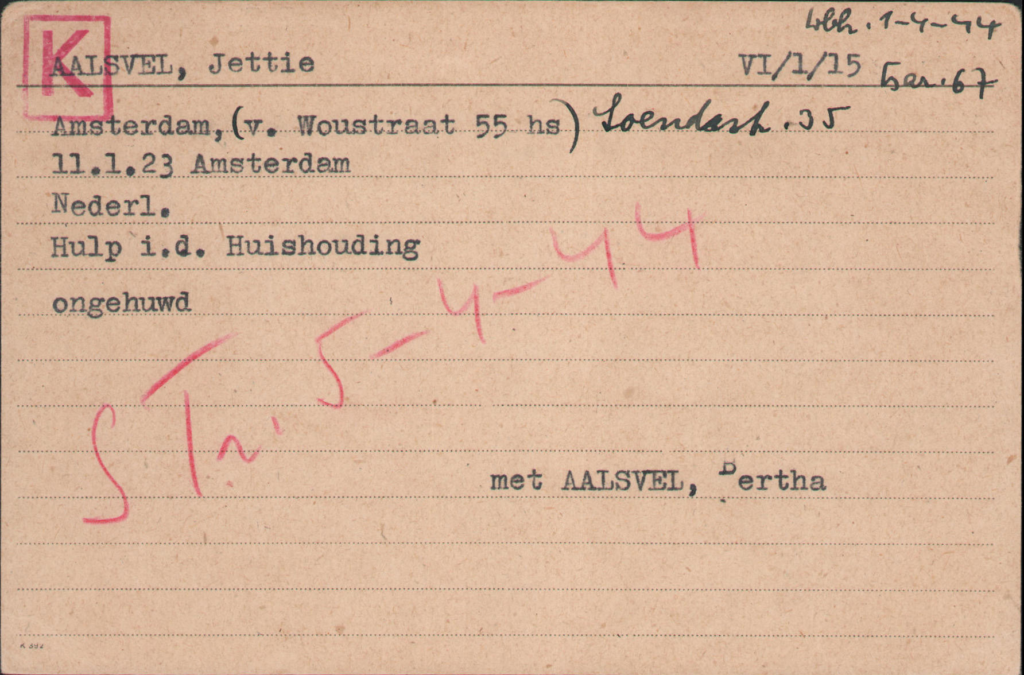 Wbk. 1-4-44
K
AALSVEL, Jettie VI/1/15 Bar. 67
Amsterdam, (v. Woustraat 55 hs) Soendastr. 35
11.1.23 Amsterdam
Nederl.
Hulp i.d. Huishouding
ongehuwd
S Tr. 5-4-44
met AALSVEL, Bertha